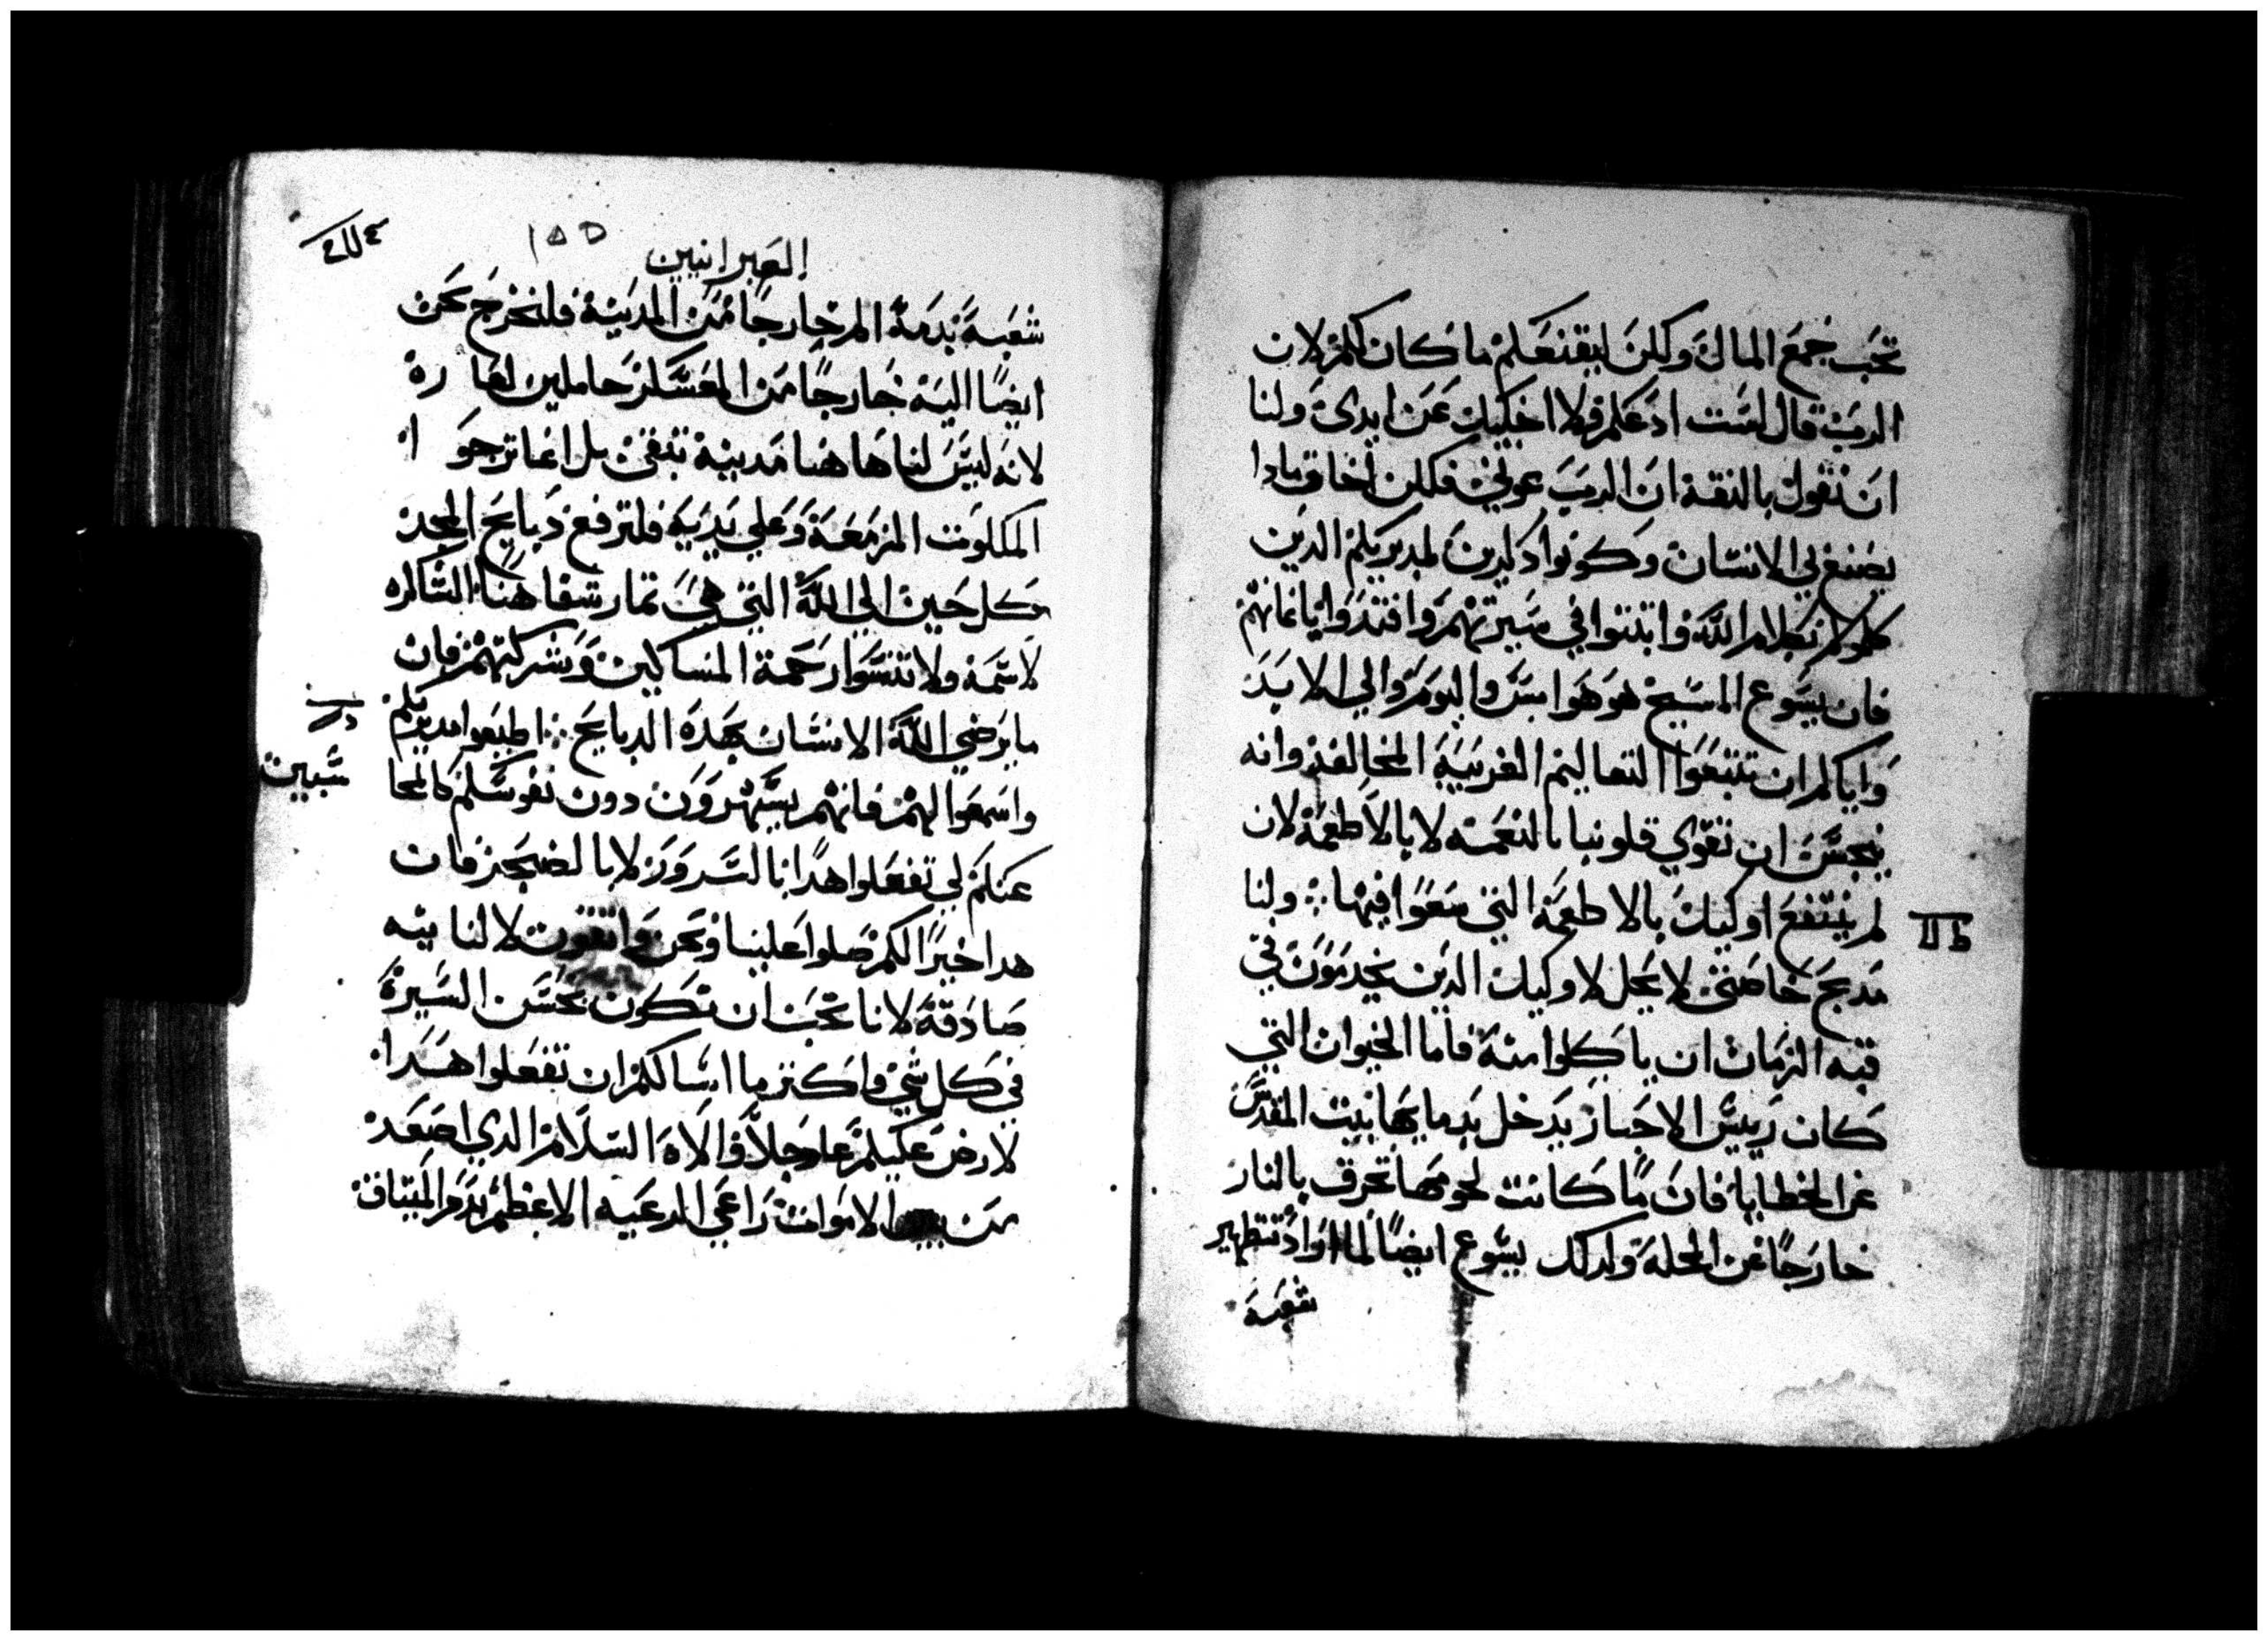 تحب جمع المال ولكن ليقنعكم ما كان لكم لان
الرب قال لست ادعكم ولا اخليك عن ايدي ولنا
ان نقول بالثقة ان الرب عوني فلن اخاف مادا
يصنع بي الانسان وكونوا داكرين لمدبريكم الدين
كلموكم بكلام الله وابتنوا في سيرتهم واقتدوا بايمانهم
فان يسوع المسيح هو هو امس واليوم والي الابد
واياكم ان تتبعوا التعاليم الغريبة المخالفة وانه
يحسن ان تقوي قلوبنا بالنعمة لا بالاطعمة لان
لم ينتفع اوليك بالاطعمة التي سعوا فيها ∴ ولنا
مدبح خاصتي لا يحل لاوليك الدين يخدمون في
قبه الزمان ان ياكلوا منه فاما الحيوان التي
كان رييس الاحبار يدخل بدمايها بيت المقدس
عن الخطايا فان ما كانت لحومها تحرق بالنار
خارجا عن المحلة ولدلك يسوع ايضا لما اراد تطهير
شعبة
العبرانيين
١٥٥
شعبة بدمة الم خارجا من المدينة فلنخرج نحن
ايضا اليه خارجا من المعسكر حاملين لعاره
لانه ليس لنا هاهنا مدينة تبقي بل انما نرجوا
الملكوت المزمعة وعلي يديه فلترفع دبايح المجد
كل حين الي الله التي هي تمار شفاهنا الشاكره
لاسمه ولا تنسوا رحمة المساكين وشركتهم فان
ما يرضي الله الانسان بهده الدبايح ∴ اطيعوا مدبريكم
واسمعوا لهم فانهم يسهرون دون نفوسكم كالمحا
سبين
عنكم لي تفعلوا هدا بالسرور لا بالضجر فان
هدا خيرا لكم صلوا علينا ونحن واثقون لان لنا نيه
صادقة لانا نحب ان نكون بحسن السيرة
في كل شي واكتر ما اسالكم ان تفعلوا هدا
لارد عليكم عاجلا والاه السلام الدي اصعد
من بين الاموات راعي الرعيه الاعظم بدم الميتاق